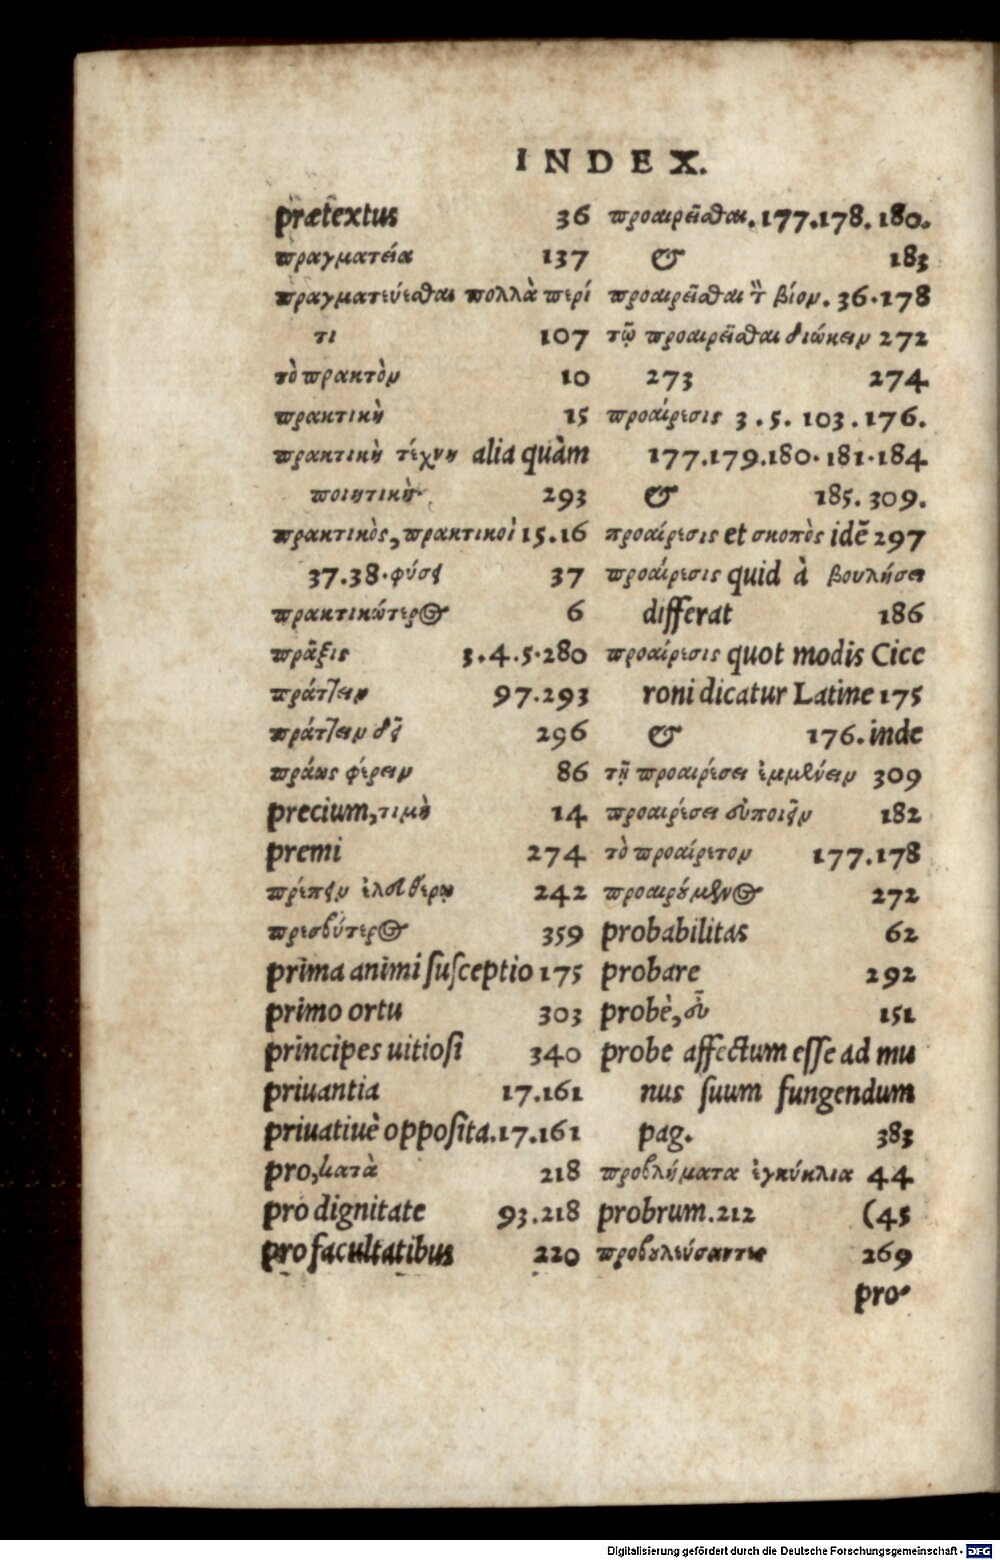 INDEX.
prætextus 36
πραγματεία 137
πραγματεύεσθαι πολλὰ περί
τι 107
τὸ πρακτὸν 10
πρακτικὴ 15
πρακτικὴ τέχνη alia quàm
ποιητικὴ 293
πρακτικὸς, πρακτικοὶ 15.16
37.38. φύσει 37
πρακτικώτερος 6
πρᾶξις 3.4.5.280
πράττειν 97.293
πράττειν δεῖ 296
πράως φέρειν 86
precium, τιμὴ 14
premi 274
πρέπειν ἐλευθέρῳ 242
πρεσβύτερος 359
prima animi ſuſceptio 175
primo ortu 303
principes uitioſi 340
priuantia 17.161
priuatiuè oppoſita. 17.161
pro, κατὰ 218
pro dignitate 93.218
pro facultatibus 220
προαιρεῖσθαι. 177.178. 180.
& 183
προαιρεῖσθαι τὸν βίον. 36.178
τῷ προαιρεῖσθαι διώκειν 272
273 274
προαίρεσις 3.5. 103.176.
177.179.180.181.184
& 185.309.
προαίρεσις et σκοπὸς idē 297
προαίρεσις quid à βουλήσει
differat 186
προαίρεσις quot modis Cice
roni dicatur Latine 175
& 176. inde
τῇ προαιρέσει ἐμμένειν 309
προαιρέσει εὖ ποιεῖν 182
τὸ προαίρετον 177.178
προαιρούμενος 272
probabilitas 62
probare 292
probè, εὖ 151
probe affectum eſſe ad mu
nus ſuum fungendum
pag. 383
προβλήματα ἐγκύκλια 44
probrum. 212 (45
προβουλεύσαντες 269
pro-
Digitalisierung gefördert durch die Deutsche Forschungsgemeinschaft - DFG